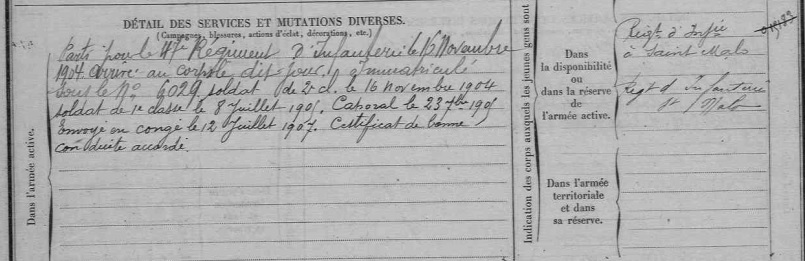 DÉTAIL DES SERVICES ET MUTATIONS DIVERSES.
(Campagnes, blessures, actions d'éclat, décorations, etc.)
Parti pour le 47e Régiment d'Infanterie le 16 Novembre
1904 arrivé au corps le dit jour, immatriculé
sous le No 6029 soldat de 2e cl. le 16 novembre 1904
soldat de 1e classe le 8 Juillet 1905. Caporal le 23 7bre 1905
envoyé en congé le 12 Juillet 1907. Certificat de bonne
conduite accordé
Dans l'armée active.
Indication des corps auxquels les jeunes gens sont
Dans
la disponibilité
ou
dans la réserve
de
l'armée active.
Régt d'Infie
à Saint Malo
Régt d'Infanterie
St Malo
Dans l'armée
territoriale
et dans
sa réserve.